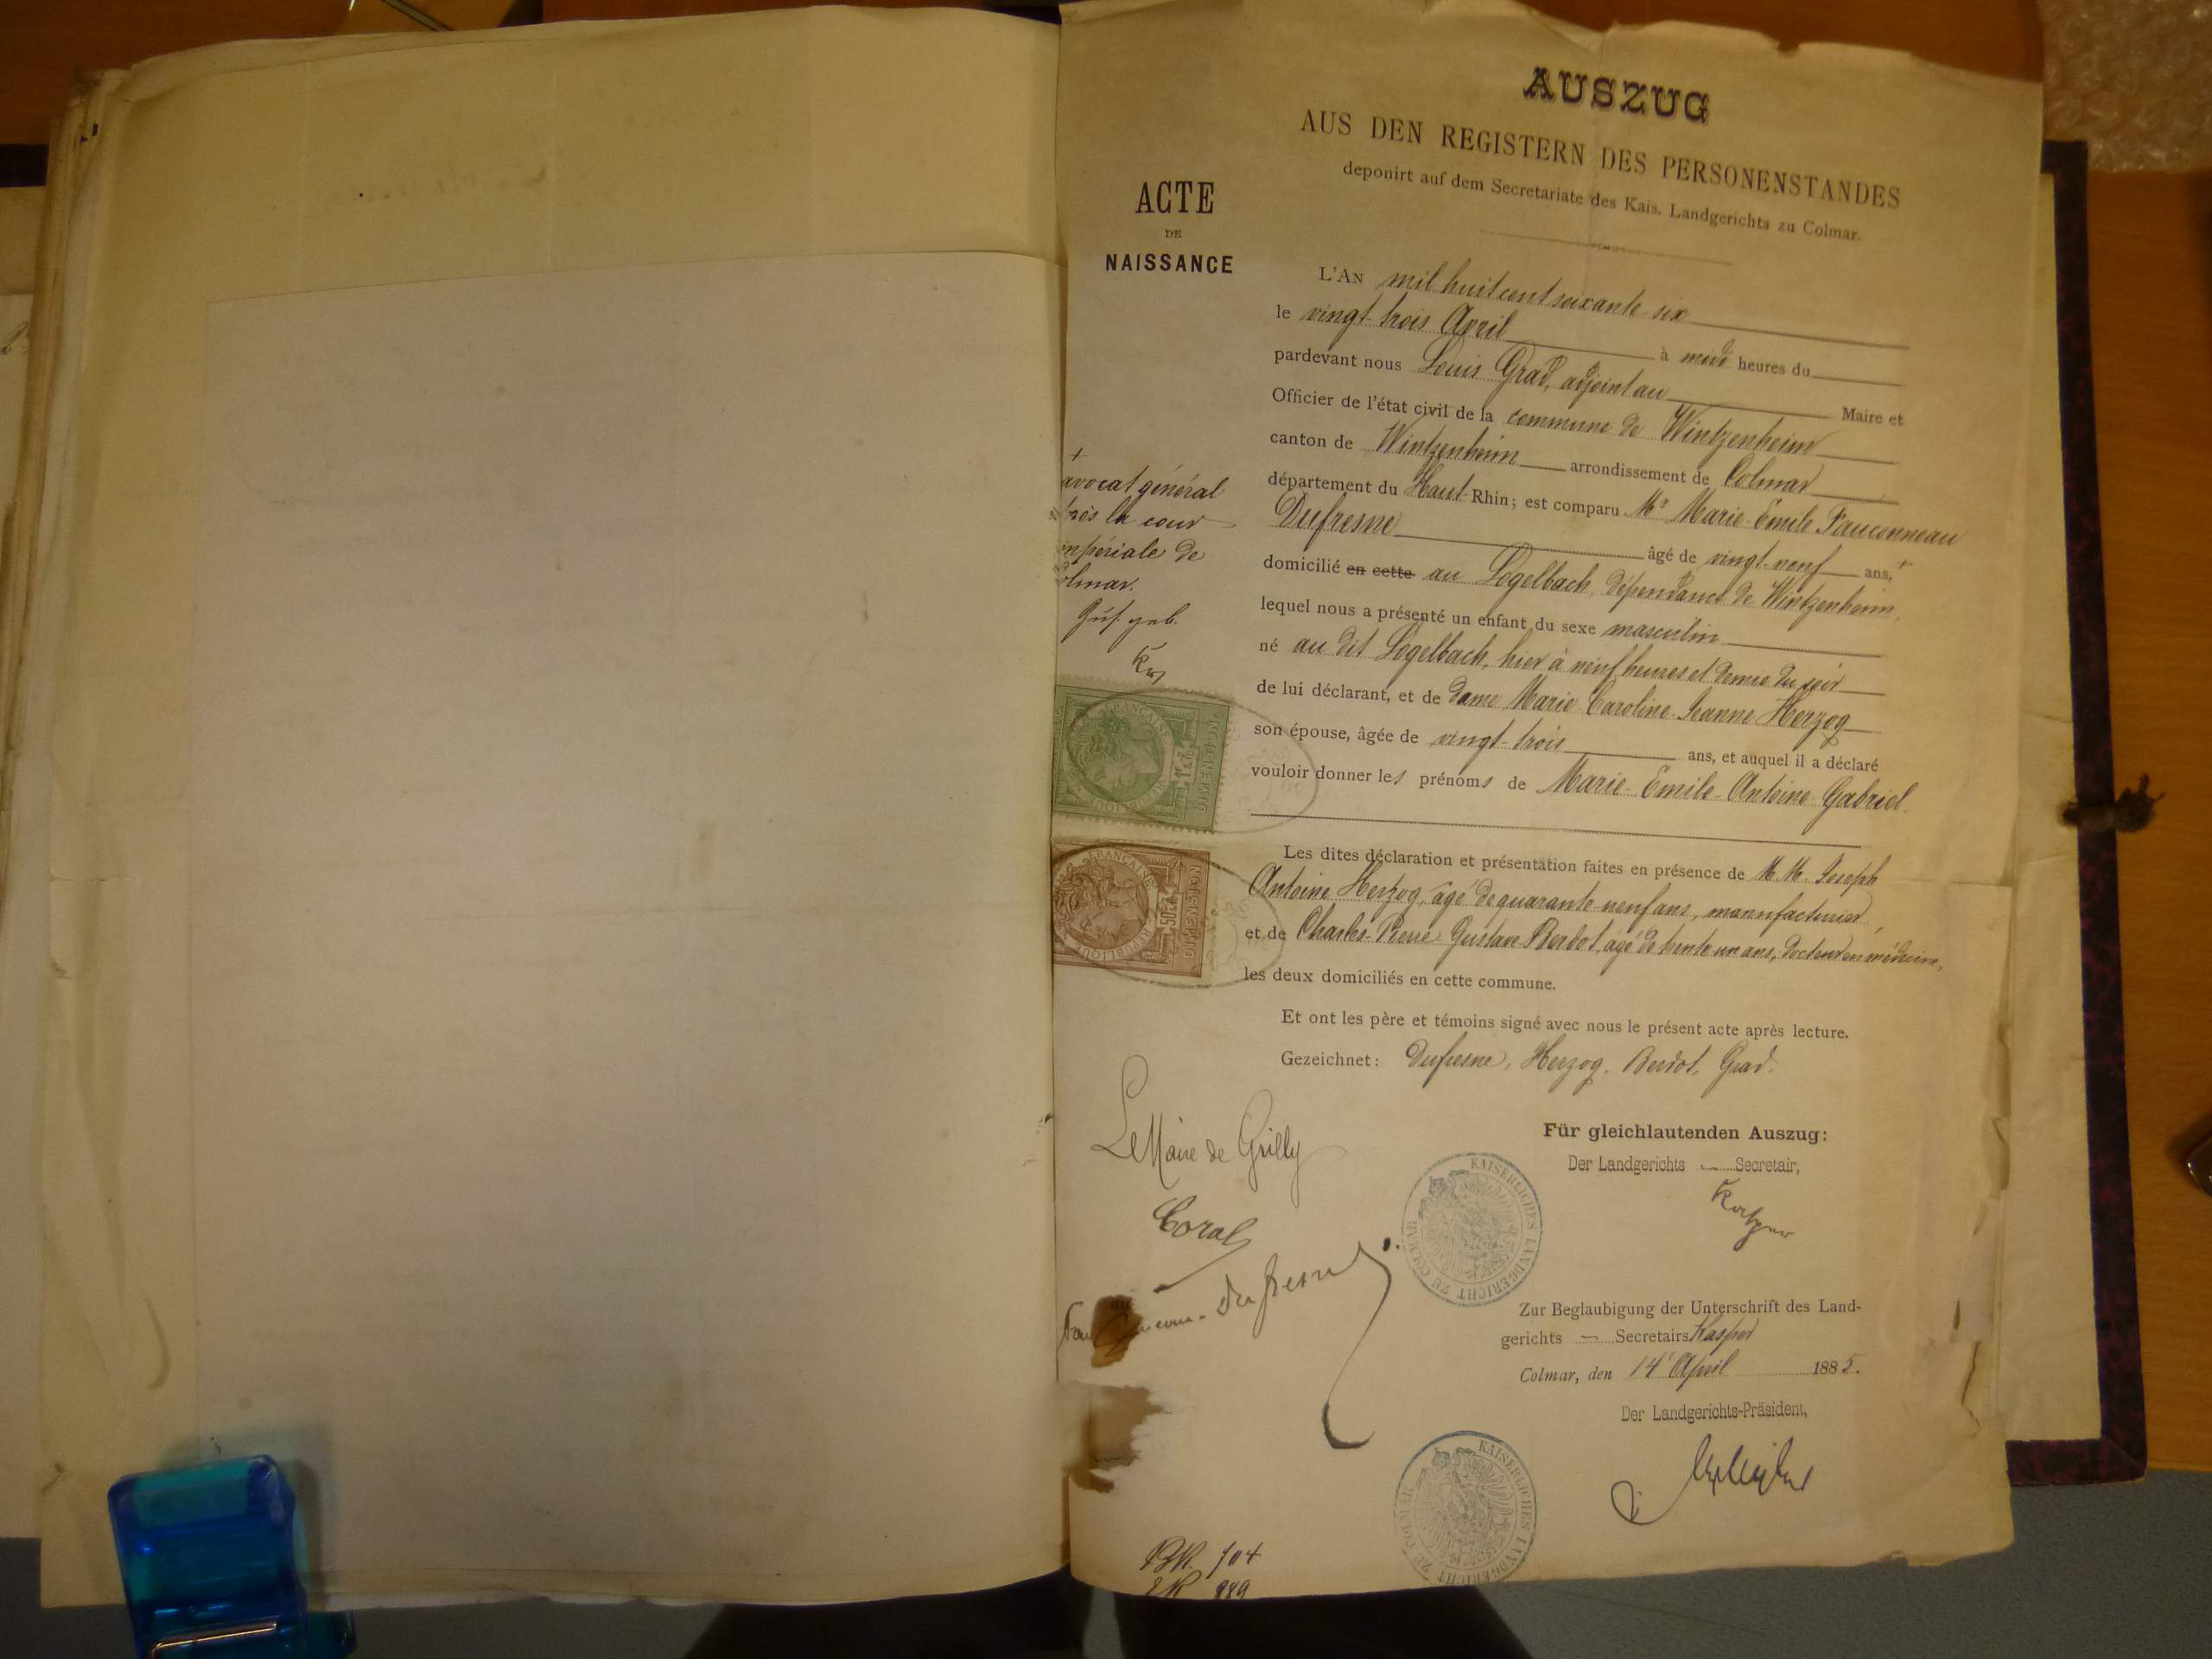 AUSZUG
AUS DEN REGISTERN DES PERSONENSTANDES
deponirt auf dem Secretariate des Kais. Landgerichts zu Colmar.
ACTE
DE
NAISSANCE
L'AN mil huit cent soixante-six
le vingt-trois Avril à midi heures du
pardevant nous Louis Grad, adjoint au Maire et
Officier de l'état civil de la commune de Wintzenheim
canton de Wintzenheim arrondissement de Colmar
département du Haut-Rhin; est comparu Mr Marie-Emile Fauconneau
Dufresne âgé de vingt-neuf ans, +
domicilié en cette au Logelbach, dépendance de Wintzenheim,
lequel nous a présenté un enfant du sexe masculin
né au dit Logelbach, hier à neuf heures et demie du soir
de lui déclarant, et de dame Marie Caroline Jeanne Herzog
son épouse, âgée de vingt-trois ans, et auquel il a déclaré
vouloir donner les prénoms de Marie-Emile-Antoine-Gabriel.
+
avocat général
près la cour
impériale de
Colmar.
RÉPUBLIQUE FRANÇAISE
DIMENSION
RÉPUBLIQUE FRANÇAISE
50c
DIMENSION
Les dites déclaration et présentation faites en présence de M.M. Joseph
Antoine Herzog, âgé de quarante-neuf ans, manufacturier
et de Charles-Pierre Gustave Berdot, âgé de trente un ans, docteur en médecine,
les deux domiciliés en cette commune.
Et ont les père et témoins signé avec nous le présent acte après lecture.
Gezeichnet: Dufresne, Herzog. Berdot, Grad.
Für gleichlautenden Auszug:
Der Landgerichts — Secretair,
KAISERLICHES LANDGERICHT ZU COLMAR
Le Maire de Grilly
Coral
Dufresne
Zur Beglaubigung der Unterschrift des Land-
gerichts — Secretairs Kasper
Colmar, den 14t April 1885.
Der Landgerichts-Präsident,
KAISERLICHES LANDGERICHT ZU COLMAR